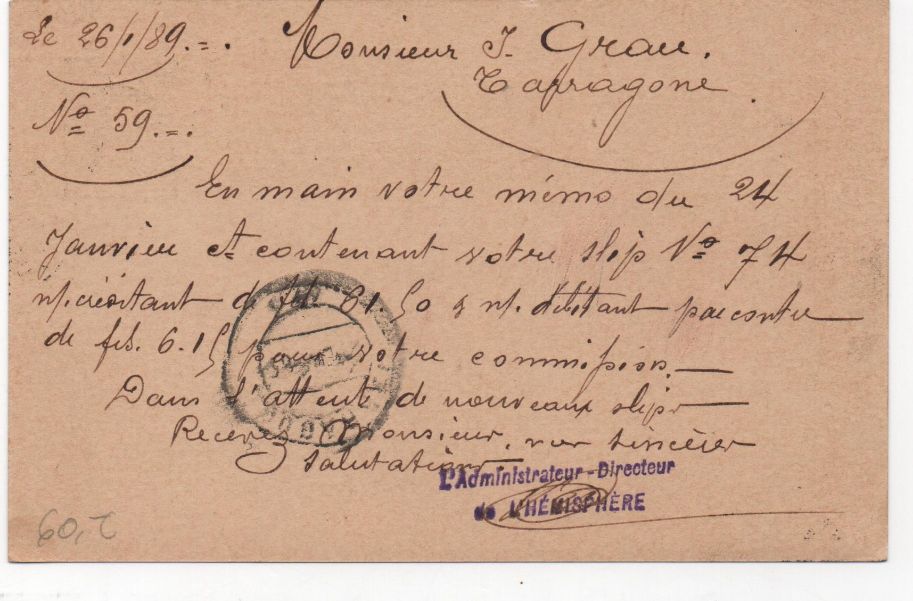 Le 26/1/89.=.
Monsieur J. Grau.
Tarragone.
Nº 59.=.
En main votre mémo du 24
Janvier et contenant votre slip Nº 74
n/. créditant de fds. 61.50 & n/. débitant par contre
de fds. 6.15 pour votre commission.—
Dans l'attente de nouveaux slips—
Recevez Monsieur, nos sincères
salutations—
L'Administrateur-Directeur
de L'HÉMISPHÈRE
60,2